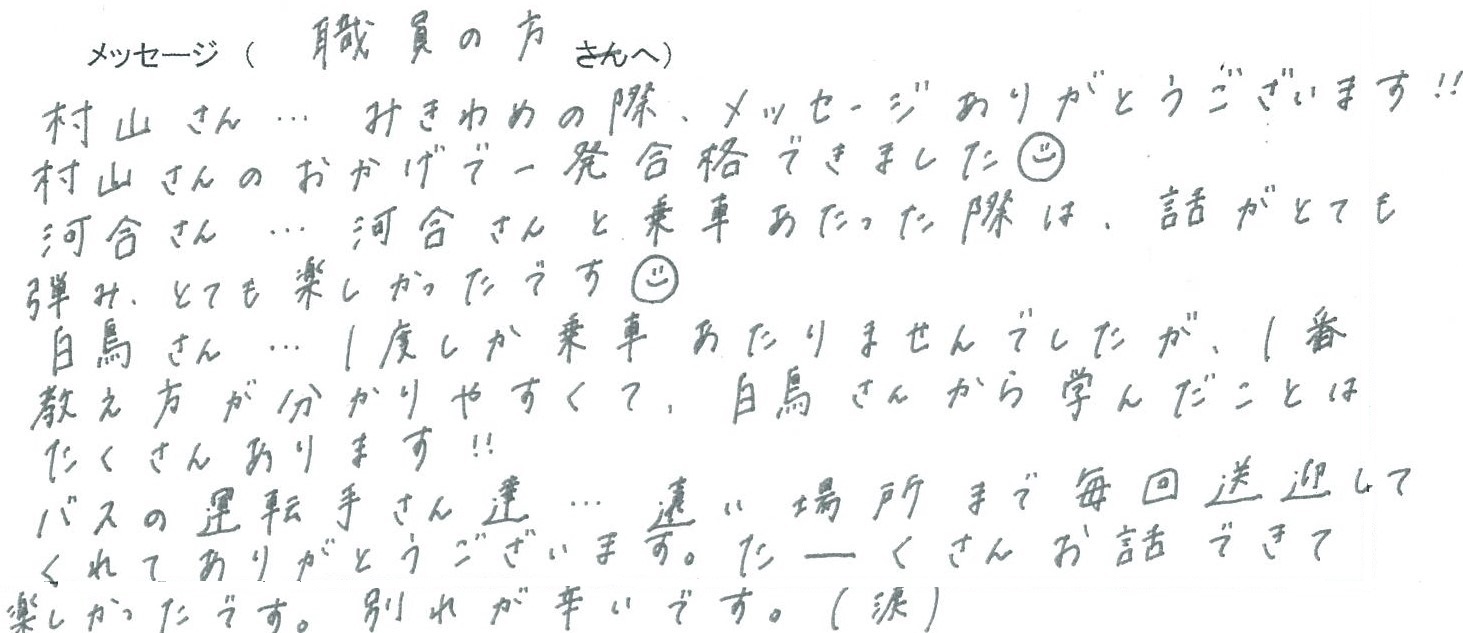 メッセージ（ 職員の方 さんへ）
村山さん… みきわめの際、メッセージありがとうございます!!
村山さんのおかげで一発合格できました☺
河合さん … 河合さんと乗車あたった際は、話がとても
弾み、とても楽しかったです☺
白鳥さん … 1度しか乗車あたりませんでしたが、1番
教え方が分かりやすくて、白鳥さんから学んだことは
たくさんあります!!
バスの運転手さん達 … 遠い場所まで毎回送迎して
くれてありがとうございます。た―くさんお話できて
楽しかったです。別れが辛いです。(涙)